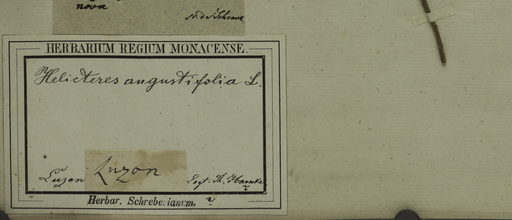 nova
HERBARIUM REGIUM MONACENSE.
Helicteres angustifolia L.
Luzon
Luzon
Legt. Th. Haenke
Herbar. Schreberianum.